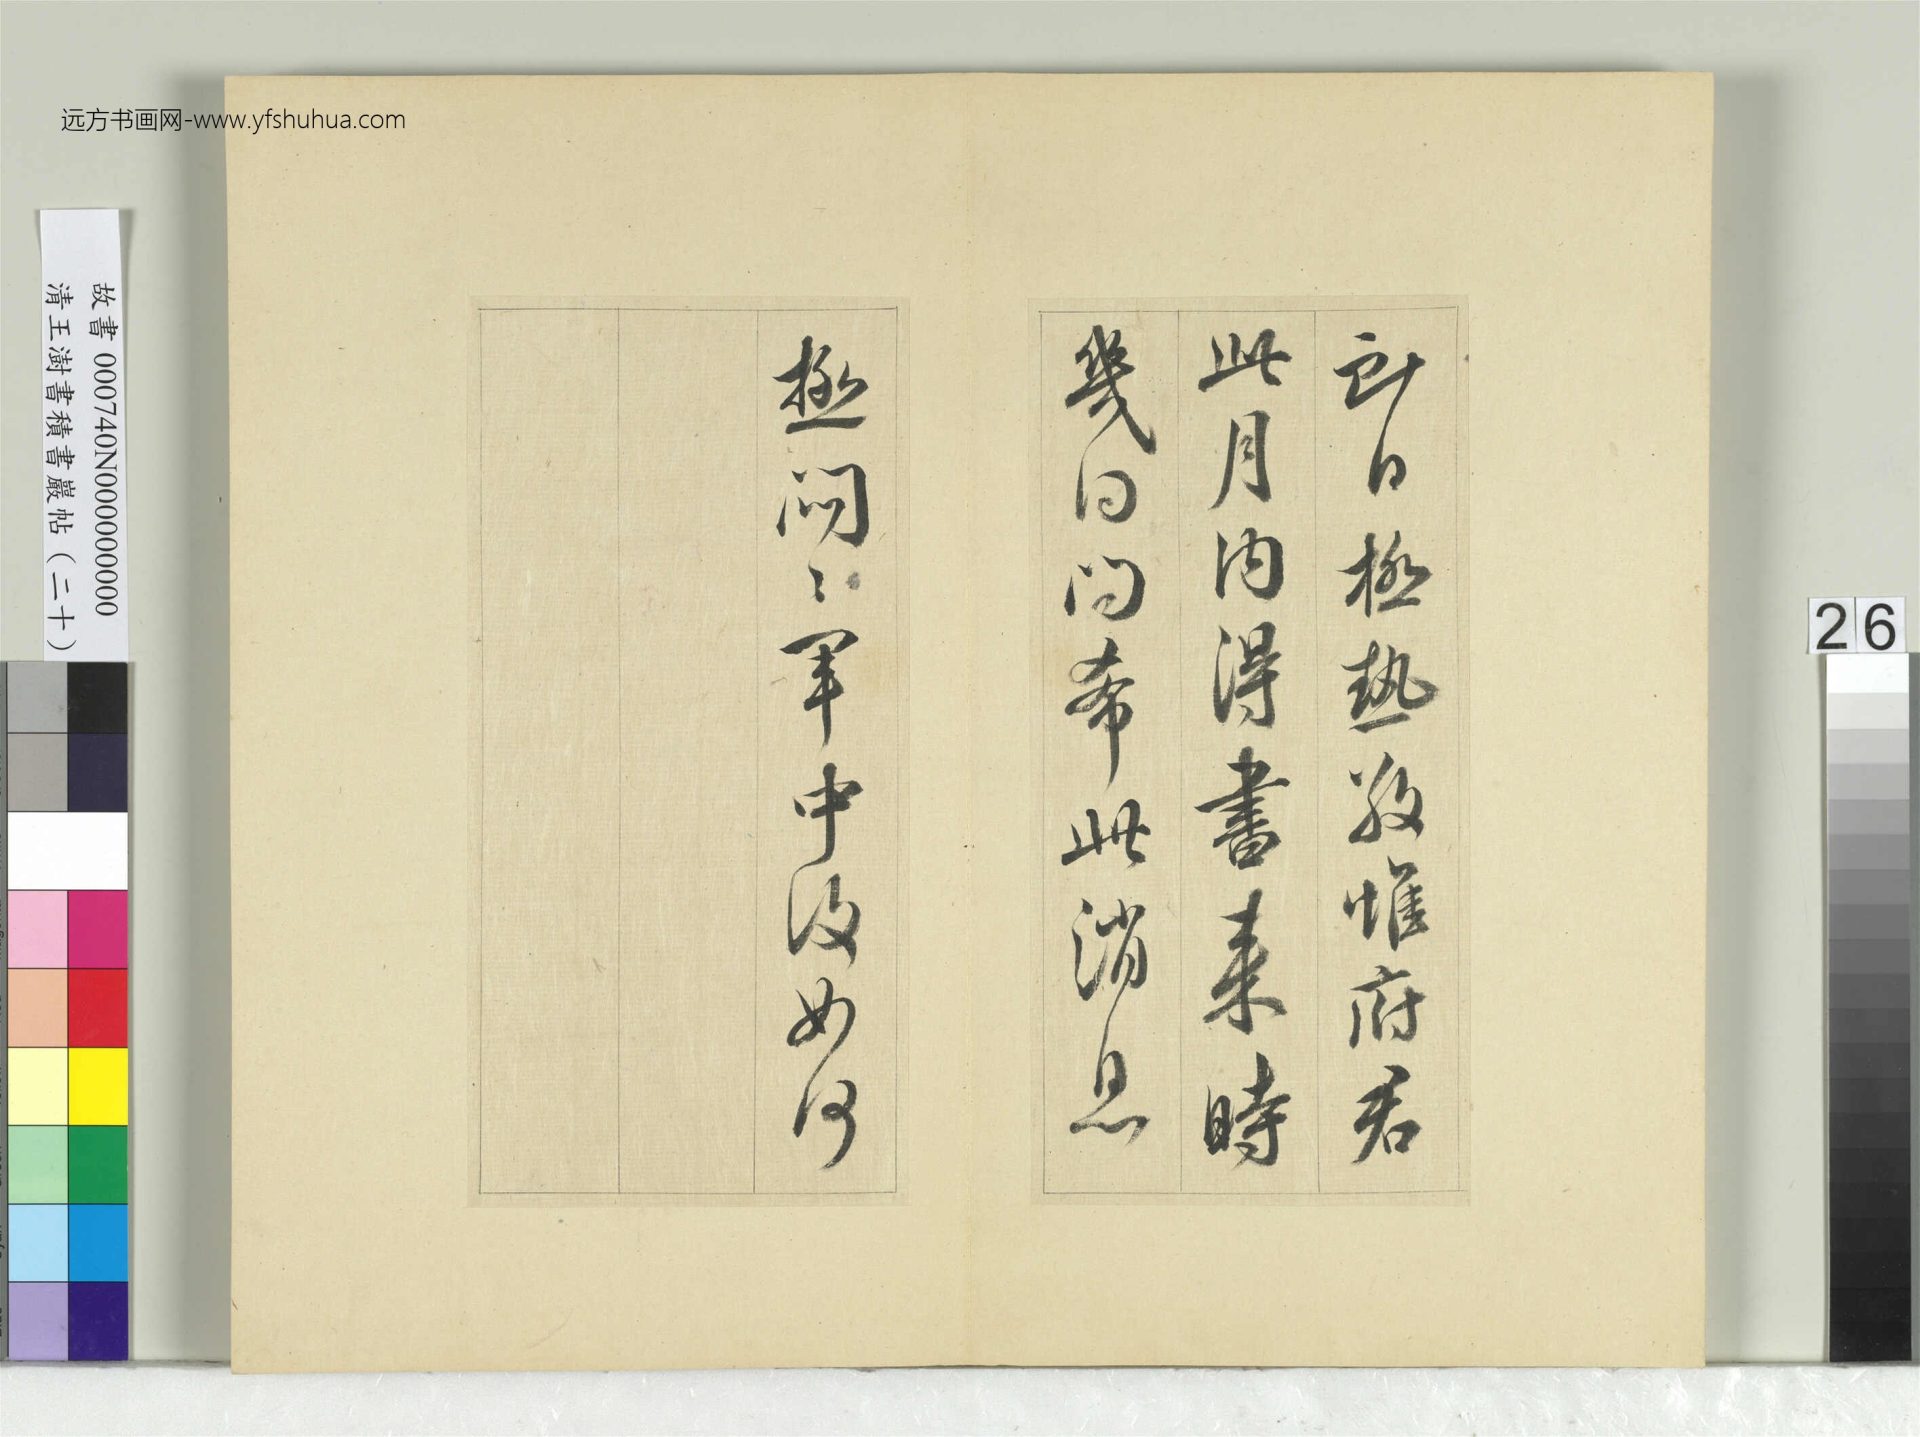 远方书画网-www.yfshuhua.com
故書 000740N000000000
清王澍書積書巖帖（二十）
即日極熱敬惟府君
此月内得書来時
幾問希此消息
極悶〻軍中復如何
26